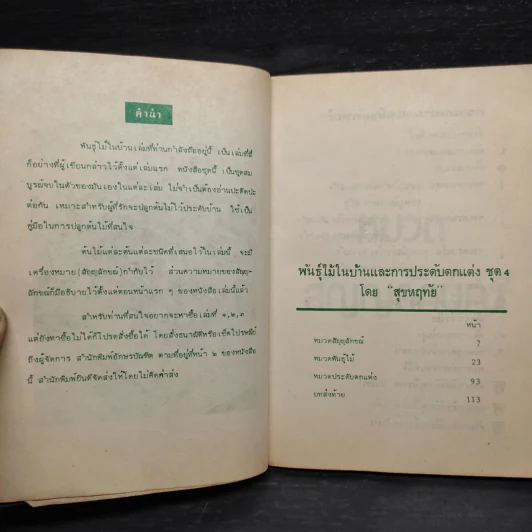 คำนำ
พันธุ์ไม้ในบ้านเล่มที่ท่านกำลังถืออยู่นี้ เป็นเล่มที่สี่
ก็อย่างที่ผู้เขียนกล่าวไว้ตั้งแต่เล่มแรก หนังสือชุดนี้ เป็นชุดสม
บูรณ์จบในตัวของมันเองในแต่ละเล่ม ไม่จำเป็นต้องอ่านปะติดปะ
ต่อกัน เหมาะสำหรับผู้ที่รักจะปลูกต้นไม้ไว้ประดับบ้าน ใช้เป็น
คู่มือในการปลูกต้นไม้ที่สนใจ
ต้นไม้แต่ละต้นแต่ละชนิดที่เสนอไว้ในเล่มนี้ จะมี
เครื่องหมาย (สัญญลักษณ์) กำกับไว้ ส่วนความหมายของสัญญ-
ลักษณ์ก็มีอธิบายไว้ตั้งแต่ตอนหน้าแรก ๆ ของหนังสือเล่มนี้แล้ว
สำหรับท่านที่สนใจอยากจะหาซื้อเล่มที่ ๑,๒,๓
แต่ยังหาซื้อไม่ได้ก็โปรดสั่งซื้อได้ โดยสั่งธนาณัติหรือเช็คไปรษณีย์
ถึงผู้จัดการ สำนักพิมพ์อักษรบัณฑิต ตามที่อยู่ที่หน้า ๒ ของหนังสือ
นี้ สำนักพิมพ์ยินดีจัดส่งให้โดยไม่คิดค่าส่ง
พันธุ์ไม้ในบ้านและการประดับตกแต่ง ชุด 4
โดย "สุขหฤทัย"
หน้า
หมวดสัญญลักษณ์ 7
หมวดพันธุ์ไม้ 23
หมวดประดับตกแต่ง 93
บทส่งท้าย 113